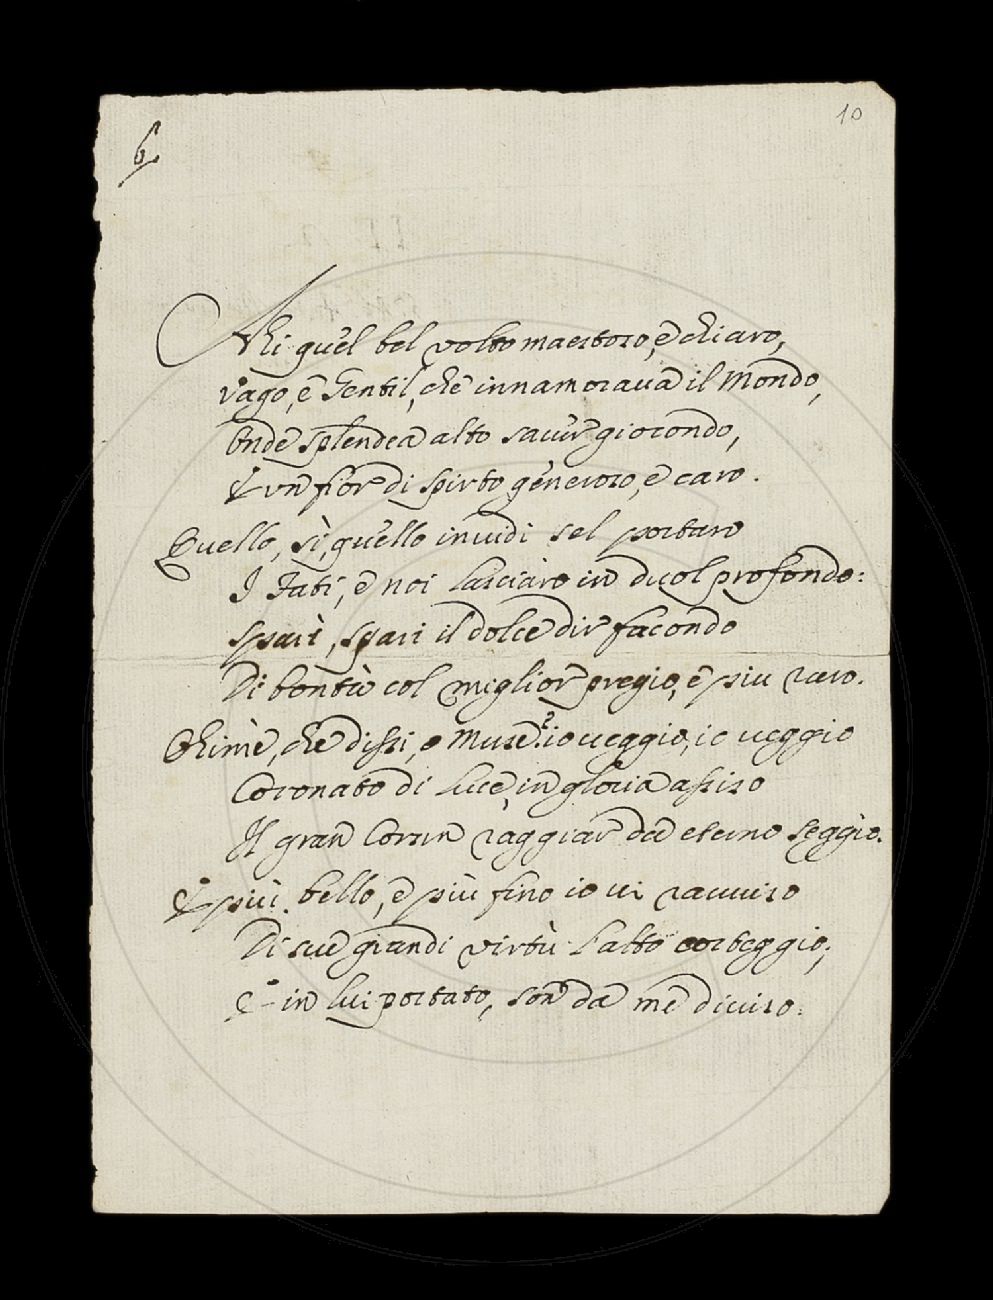 10
6
Ahi quel bel volto maestoso, e chiaro,
Vago, e Gentil, che innamorava il Mondo,
Onde splendea alto saver giocondo,
E un fior di spirto generoso, e caro.
Quello, sì, quello invidi sel portaro
I Fati, e noi lasciàro in duol profondo:
Sparì, sparì il dolce dir facondo
Di bontà col miglior pregio, e piu raro.
Ohimè, che dissi, o Muse? io veggio, io veggio
Coronato di luce, in gloria assiso
Il gran Corsin raggiar da eterno seggio.
E più bello, e più fino io vi ravviso
Di sue grandi virtù l'alto corteggio;
E in lui portato, son da me diviso.